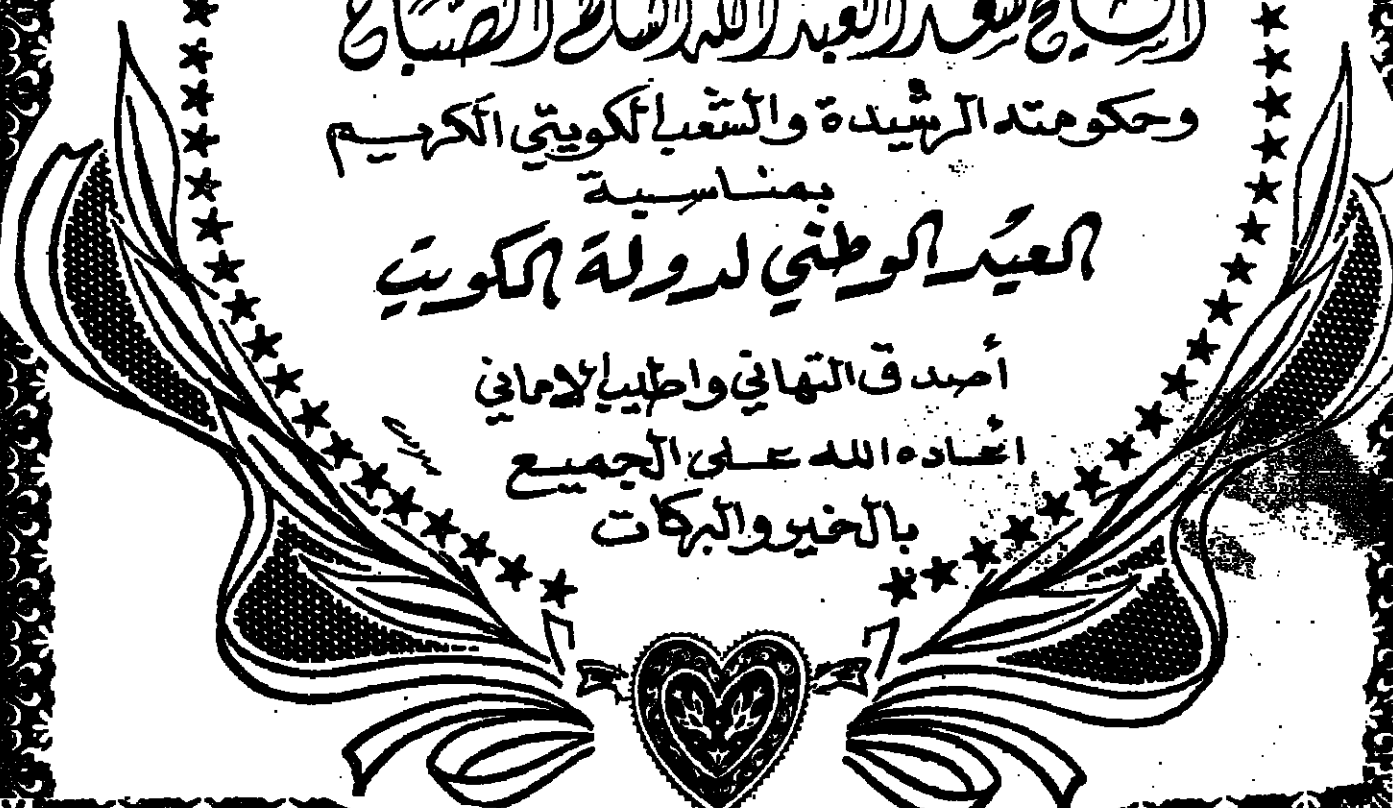 الشيخ سعد العبد الله السالم الصباح
وحكومته الرشيدة والشعب الكويتي الكريم
بمناسبة
العيد الوطني لدولة الكويت
أصدق التهاني واطيب الاماني
أعاده الله على الجميع
بالخير والبركات